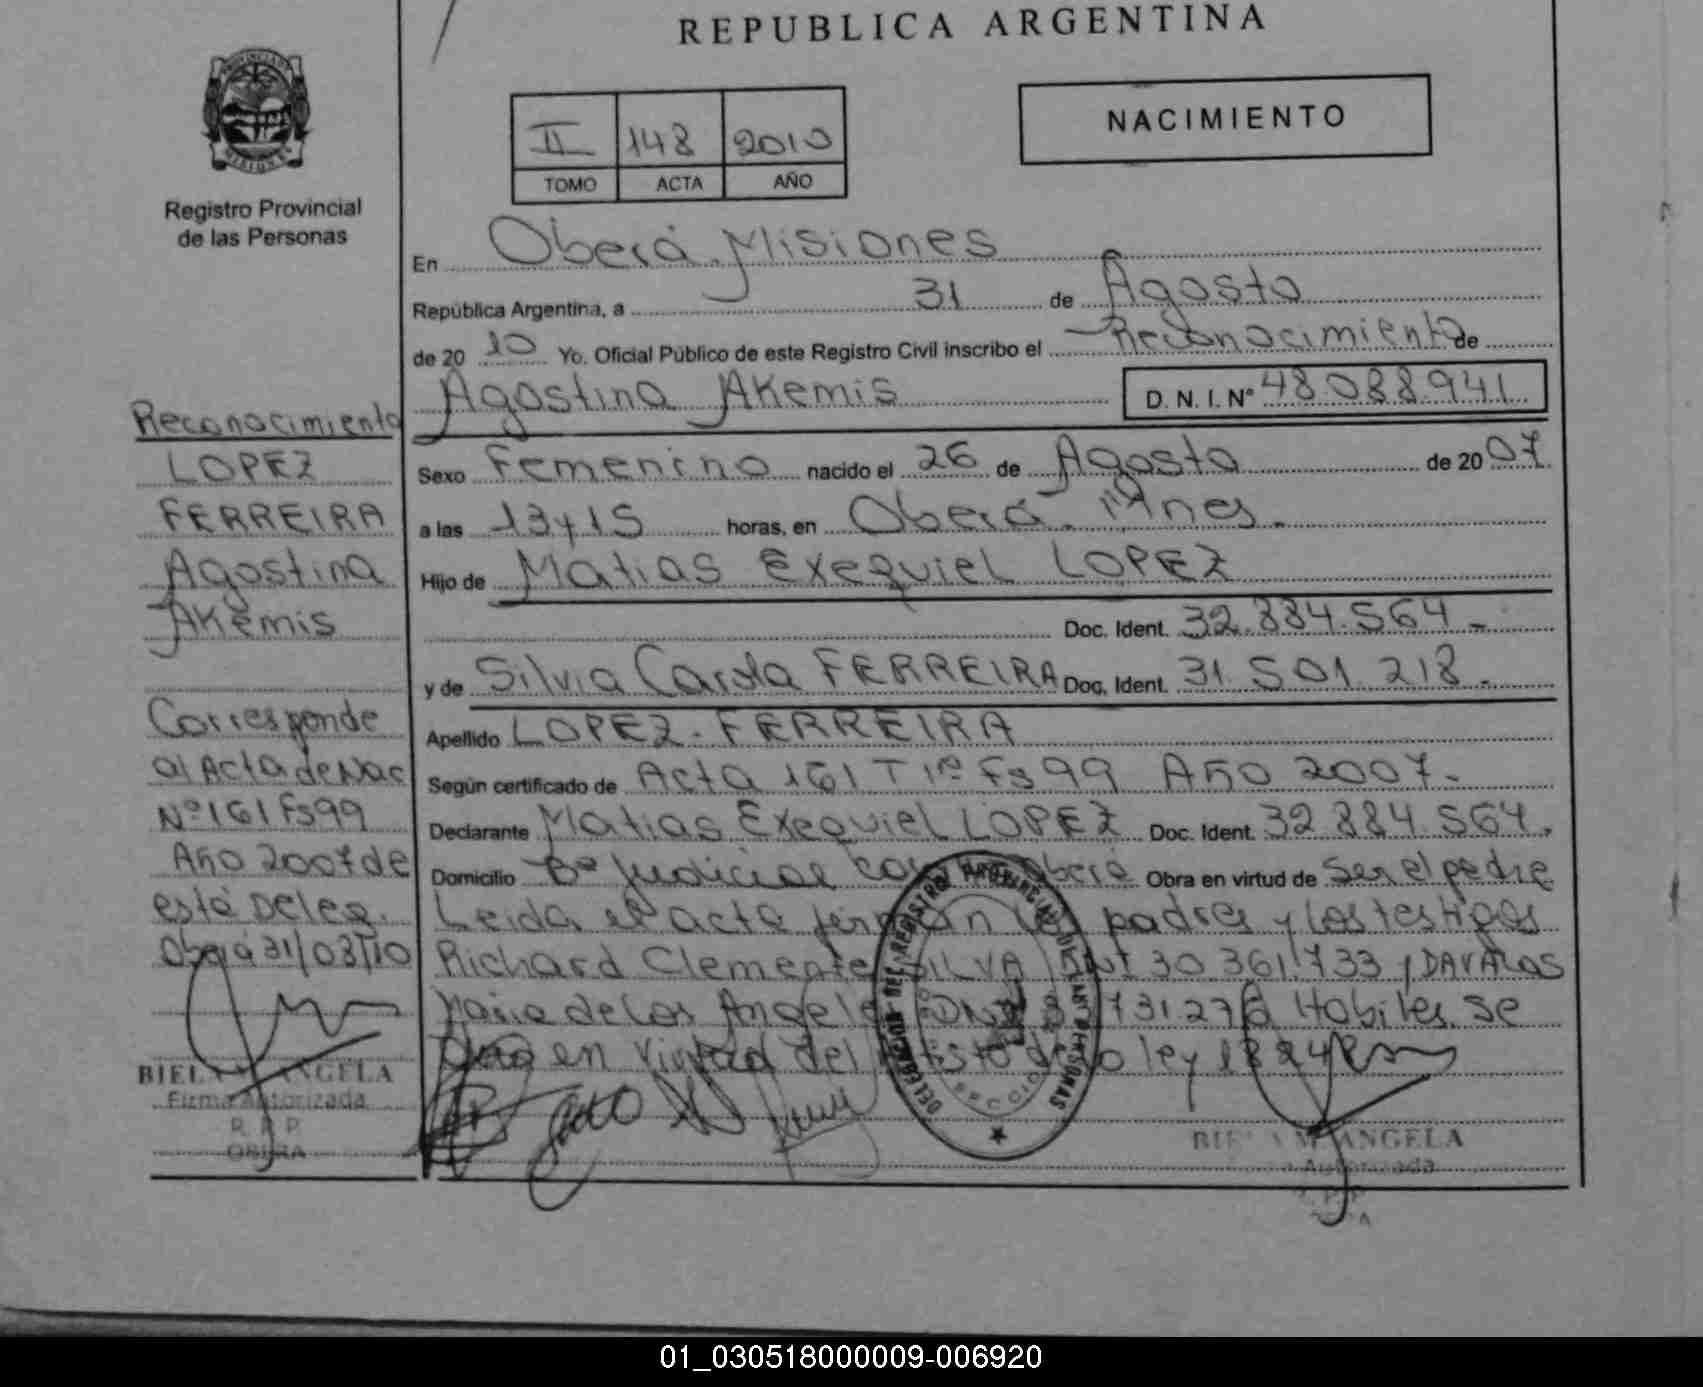 REPUBLICA ARGENTINA
PROVINCIA DE
MISIONES
Registro Provincial
de las Personas
II 148 2010
TOMO ACTA AÑO
NACIMIENTO
En Oberá. Misiones
República Argentina, a 31 de Agosto
de 20 10 Yo. Oficial Público de este Registro Civil inscribo el Reconocimiento de
Agostina Akemis D. N. I. Nº 48.088.941
Sexo Femenino nacido el 26 de Agosto de 20 07
a las 13y15 horas, en Oberá. Mnes.
Hijo de Matias Exequiel LOPEZ
Doc. Ident. 32.884.564 -
y de Silvia Carola FERREIRA Doc. Ident. 31.501.218.-
Apellido LOPEZ - FERREIRA
Según certificado de Acta 161 T 1º Fs 99 Año 2007.-
Declarante Matias Exequiel LOPEZ Doc. Ident. 32.884.564.
Domicilio Bº Judicial Oberá Obra en virtud de Ser el padre
Leida el acta firman los padres y los testigos
Richard Clemente SILVA DNI 30 361.733 y DAVALOS
Maria de los Angeles DNI Habiles. Se
en Virtud del de la ley
Reconocimiento
LOPEZ
FERREIRA
Agostina
Akemis
Corresponde
al Acta de Nac
Nº 161 Fs 99
Año 2007 de
está Deleg.
Oberá 31/08/10
BIEL ANGELA
Firma Autorizada
R. P. P.
OBERA
DELEGACION DEL REGISTRO PROVINCIAL DE LAS PERSONAS
BIE M ANGELA
Autorizada
01_030518000009-006920